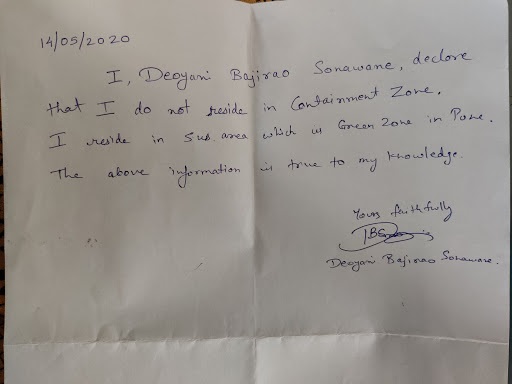 14/05/2020
I, Deoyani Bajirao Sonawane, declare
that I do not reside in Containment Zone.
I reside in Sus area which is Green Zone in Pune.
The above information is true to my knowledge.
Yours faithfully
Deoyani Bajirao Sonawane.